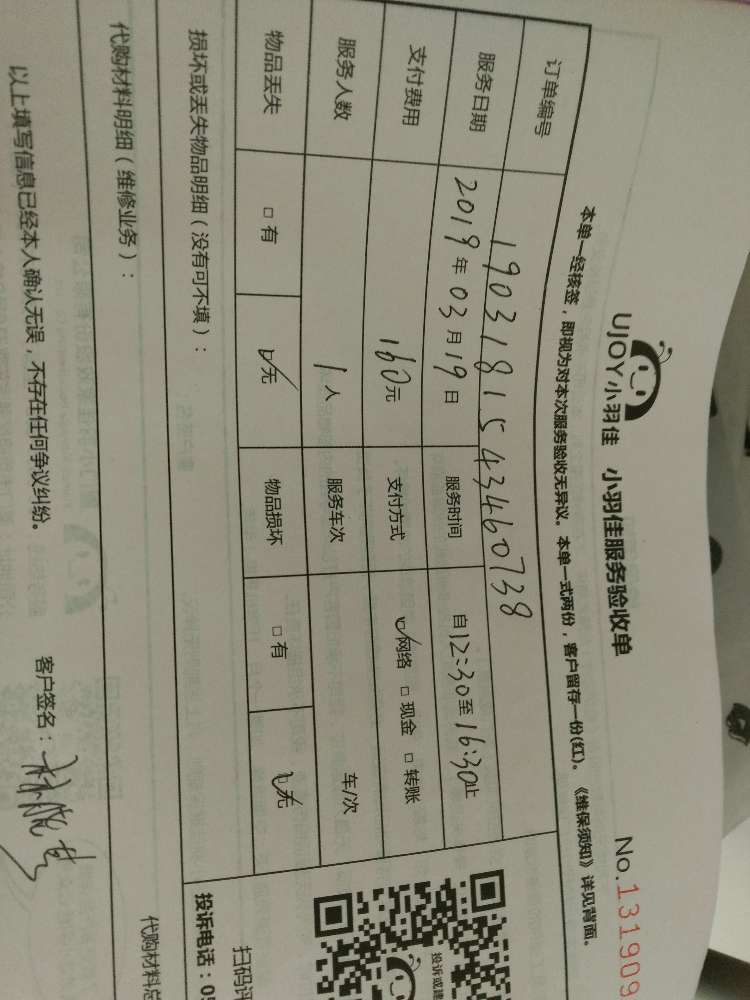 UJOY小羽佳 小羽佳服务验收单 No.131909
本单一经核签，即视为对本次服务验收无异议。本单一式两份，客户留存一份(红)。《维保须知》详见背面。
订单编号 190318154346073​8
服务日期 2019年03月19日 服务时间 自12:30至16:30止
支付费用 160元 支付方式 网络 现金 转账
服务人数 1人 服务车次 车/次
物品丢失 有 无 物品损坏 有 无
损坏或丢失物品明细（没有可不填）：
扫码评
投诉电话：05
代购材料明细（维修业务）：
代购材料总
以上填写信息已经本人确认无误，不存在任何争议纠纷。 客户签名：